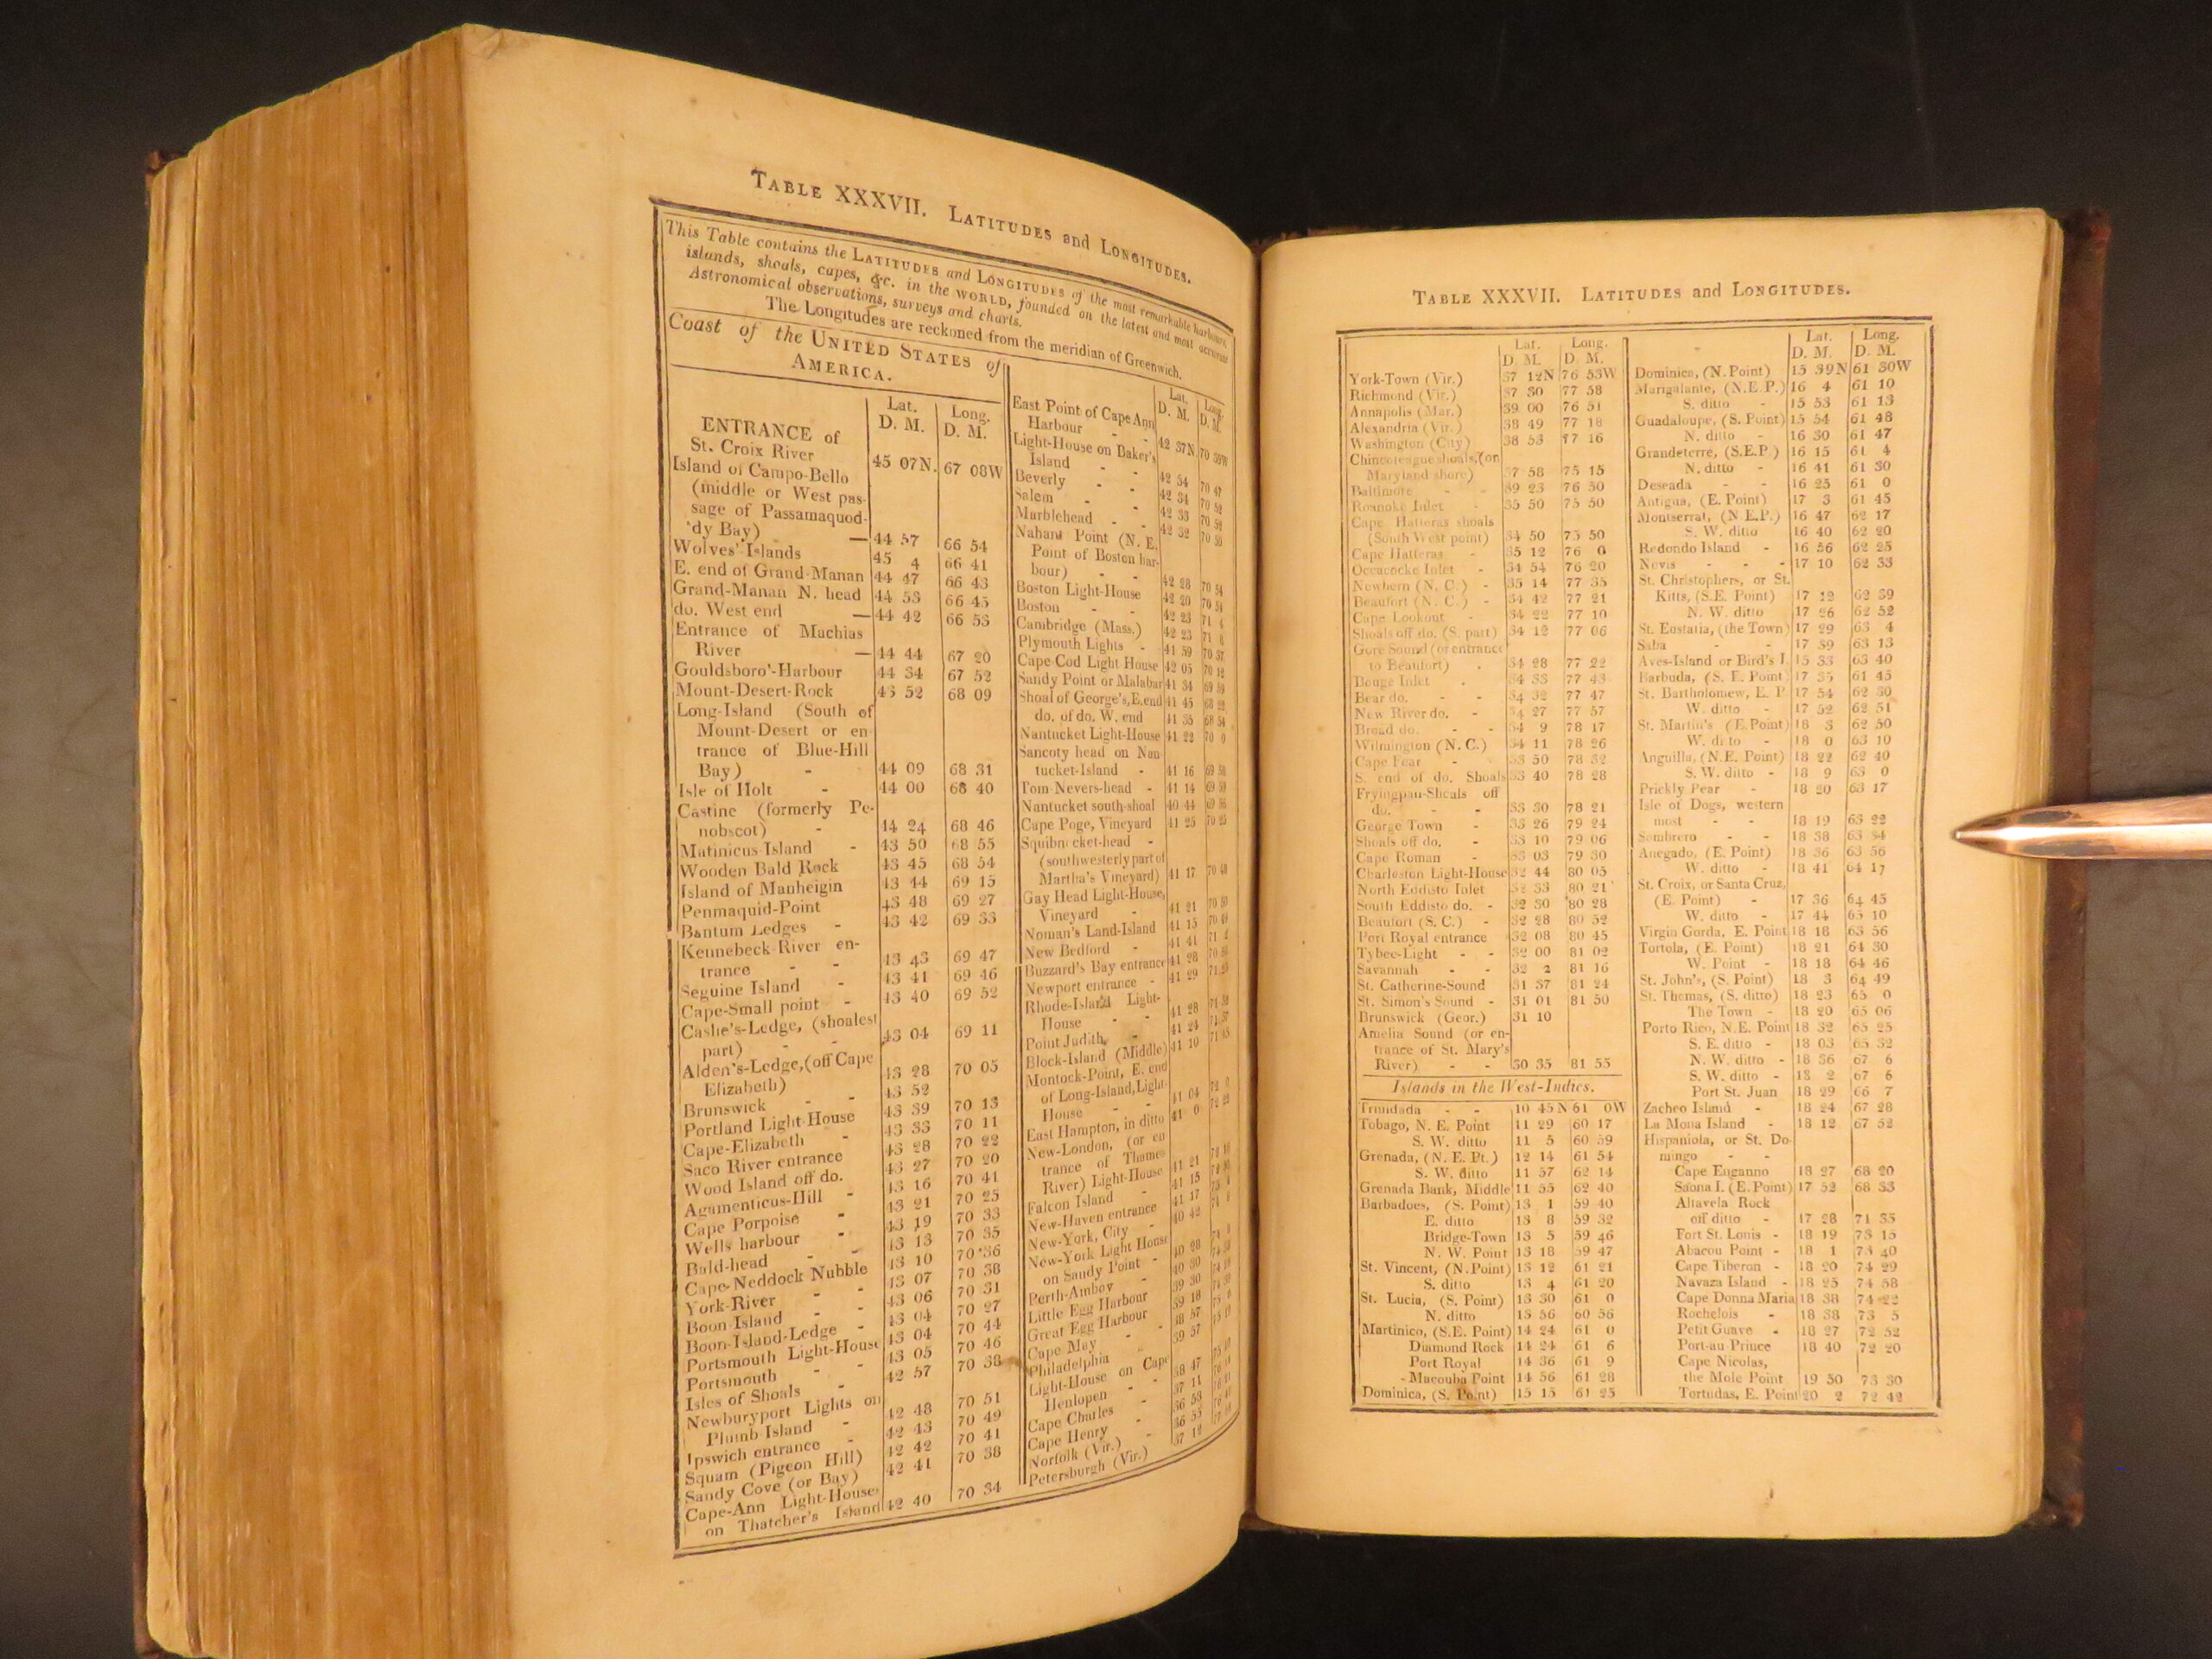 TABLE XXXVII. LATITUDES and LONGITUDES.
This Table contains the LATITUDES and LONGITUDES of the most remarkable harbours,
islands, shoals, capes, &c. in the WORLD, founded on the latest and most accurate
Astronomical observations, surveys and charts.
The Longitudes are reckoned from the meridian of Greenwich.
Coast of the UNITED STATES of
AMERICA.
Lat. Long.
D. M. D. M.
ENTRANCE of
St. Croix River 45 07N. 67 08W
Island of Campo-Bello
(middle or West pas-
sage of Passamaquod-
dy Bay) 44 57 66 54
Wolves' Islands 45 4 66 41
E. end of Grand-Manan 44 47 66 43
Grand-Manan N. head 44 53 66 45
do. West end 44 42 66 53
Entrance of Machias
River 44 44 67 20
Gouldsboro'-Harbour 44 34 67 52
Mount-Desert-Rock 43 52 68 09
Long-Island (South of
Mount-Desert or en-
trance of Blue-Hill
Bay) - 44 09 68 31
Isle of Holt - 44 00 68 40
Castine (formerly Pe-
nobscot) - 44 24 68 46
Matinicus Island - 43 50 68 55
Wooden Bald Rock 43 45 68 54
Island of Manheigin 43 44 69 15
Penmaquid-Point 43 48 69 27
Bantum Ledges - 43 42 69 33
Kennebeck River en-
trance - - 43 43 69 47
Seguine Island - 43 41 69 46
Cape-Small point - 43 40 69 52
Cashe's-Ledge, (shoalest
part) - - 43 04 69 11
Alden's-Ledge, (off Cape
Elizabeth) 43 28 70 05
Brunswick - - 43 52
Portland Light-House 43 39 70 13
Cape-Elizabeth - 43 33 70 11
Saco River entrance 43 28 70 22
Wood Island off do. 43 27 70 20
Agamenticus-Hill - 43 16 70 41
Cape Porpoise - 43 21 70 25
Wells harbour - 43 19 70 33
Bald-head - - 43 13 70 35
Cape-Neddock Nubble 43 10 70 36
York-River - - 43 07 70 38
Boon Island - - 43 06 70 31
Boon-Island-Ledge - 43 04 70 27
Portsmouth Light-House 43 04 70 44
Portsmouth - - 43 05 70 46
Isles of Shoals - 42 57 70 38
Newburyport Lights on
Plumb Island - 42 48 70 51
Ipswich entrance - 42 43 70 49
Squam (Pigeon Hill) 42 42 70 41
Sandy Cove (or Bay) 42 41 70 38
Cape-Ann Light-House
on Thatcher's Island 42 40 70 34
Lat. Long.
D. M. D. M.
East Point of Cape Ann
Harbour - - 42 37N
Light-House on Baker's
Island - - 42 34
Beverly - - 42 34
Salem - - 42 33
Marblehead - - 42 32
Nahant Point (N. E.
Point of Boston har-
bour) - - 42 28
Boston Light-House 42 20
Boston - - 42 23
Cambridge (Mass.) 42 23
Plymouth Lights - 41 59
Cape Cod Light House 42 05
Sandy Point or Malabar 41 34
Shoal of George's, E. end 41 45
do. of do. W. end 41 35
Nantucket Light-House 41 22 70 0
Sancoty head on Nan
tucket-Island - 41 16
Tom Nevers-head - 41 14
Nantucket south-shoal 40 44
Cape Poge, Vineyard 41 25 70 25
Squibnocket-head -
(southwesterly part of
Martha's Vineyard) 41 17
Gay Head Light-House,
Vineyard - 41 21
Noman's Land-Island 41 15
New Bedford - 41 41
Buzzard's Bay entrance 41 28
Newport entrance - 41 29
Rhode-Island Light-
House - - 41 28
Point Judith, - 41 24
Block-Island (Middle) 41 10
Montock-Point, E. end
of Long-Island, Light-
House - - 41 04
East Hampton, in ditto 41 0
New-London, (or en
trance of Thames
River) Light-House 41 21
Falcon Island - 41 15
New-Haven entrance 41 17
New-York, City - 40 42
New-York Light House
on Sandy Point - 40 28
Perth-Amboy - 40 30
Little Egg Harbour 39 30
Great Egg Harbour 39 18
Cape May - - 38 57
Philadelphia - 39 57
Light-House on Cape
Henlopen - - 38 47
Cape Charles - 37 11
Cape Henry - 36 58
Norfolk (Vir.) - 36 55
Petersburgh (Vir.) 37 12
TABLE XXXVII. LATITUDES and LONGITUDES.
Lat. Long.
D. M. D. M.
York-Town (Vir.) 37 12N 76 53W
Richmond (Vir.) 37 30 77 58
Annapolis (Mar.) 39 00 76 51
Alexandria (Vir.) 38 49 77 18
Washington (City) 38 53 77 16
Chincoteague shoals, (on
Maryland shore) 37 58 75 15
Baltimore - - 39 23 76 50
Roanoke Inlet - 35 50 75 50
Cape Hatteras shoals
(South West point) 34 50 75 50
Cape Hatteras - 35 12 76 0
Occacocke Inlet - 34 54 76 20
Newbern (N. C.) - 35 14 77 35
Beaufort (N. C.) - 34 42 77 21
Cape Lookout - 34 22 77 10
Shoals off do. (S. part) 34 12 77 06
Gore Sound (or entrance
to Beaufort) . 34 28 77 22
Bouge Inlet . 34 33 77 43
Bear do. - - 34 32 77 47
New River do. - 34 27 77 57
Broad do. - - 34 9 78 17
Wilmington (N. C.) 34 11 78 26
Cape Fear - 33 50 78 32
S. end of do. Shoals 33 40 78 28
Fryingpan-Shoals off
do. - - 33 30 78 21
George Town - 33 26 79 24
Shoals off do. - 33 10 79 06
Cape Roman - 33 03 79 30
Charleston Light-House 32 44 80 05
North Eddisto Inlet 32 33 80 21
South Eddisto do. - 32 30 80 28
Beaufort (S. C.) - 32 28 80 52
Port Royal entrance 32 08 80 45
Tybee-Light - - 32 00 81 02
Savannah - - 32 2 81 16
St. Catherine-Sound 31 37 81 24
St. Simon's Sound - 31 01 81 50
Brunswick (Geor.) 31 10
Amelia Sound (or en-
trance of St. Mary's
River) - - 30 35 81 55
Islands in the West-Indies.
Trinidada - - 10 45N 61 0W
Tobago, N. E. Point 11 29 60 17
S. W. ditto 11 5 60 59
Grenada, (N. E. Pt.) 12 14 61 54
S. W. ditto 11 57 62 14
Grenada Bank, Middle 11 55 62 40
Barbadoes, (S. Point) 13 1 59 40
E. ditto 13 8 59 32
Bridge-Town 13 5 59 46
N. W. Point 13 18 59 47
St. Vincent, (N. Point) 13 12 61 21
S. ditto 13 4 61 20
St. Lucia, (S. Point) 13 30 61 0
N. ditto 13 56 60 56
Martinico, (S.E. Point) 14 24 61 0
Diamond Rock 14 24 61 6
Port Royal 14 36 61 9
Macouba Point 14 56 61 28
Dominica, (S. Point) 15 15 61 25
Lat. Long.
D. M. D. M.
Dominica, (N. Point) 15 39N 61 30W
Marigalante, (N.E.P.) 16 4 61 10
S. ditto - 15 53 61 13
Guadaloupe, (S. Point) 15 54 61 48
N. ditto - 16 30 61 47
Grandeterre, (S.E.P.) 16 15 61 4
N. ditto - 16 41 61 30
Deseada - - 16 25 61 0
Antigua, (E. Point) 17 3 61 45
Montserrat, (N.E.P.) 16 47 62 17
S. W. ditto 16 40 62 20
Redondo Island - 16 56 62 25
Nevis - - - 17 10 62 33
St. Christophers, or St.
Kitts, (S.E. Point) 17 12 62 39
N. W. ditto 17 26 62 52
St. Eustatia, (the Town) 17 29 63 4
Saba - - 17 39 63 13
Aves-Island or Bird's I. 15 33 63 40
Barbuda, (S. E. Point) 17 35 61 45
St. Bartholomew, E. P. 17 54 62 30
W. ditto - 17 52 62 51
St. Martin's (E. Point) 18 3 62 50
W. ditto - 18 0 63 10
Anguilla, (N.E. Point) 18 22 62 40
S.W. ditto - 18 9 63 0
Prickly Pear - 18 20 63 17
Isle of Dogs, western
most - - 18 19 63 22
Sombrero - - 18 38 63 34
Anegado, (E. Point) 18 36 63 56
W. ditto - 18 41 64 17
St. Croix, or Santa Cruz,
(E. Point) - 17 36 64 45
W. ditto - 17 44 65 10
Virgin Gorda, E. Point 18 18 63 56
Tortola, (E. Point) 18 21 64 30
W. Point - 18 18 64 46
St. John's, (S. Point) 18 3 64 49
St. Thomas, (S. ditto) 18 23 65 0
The Town - 18 20 65 06
Porto Rico, N.E. Point 18 32 65 25
S. E. ditto - 18 03 65 32
N. W. ditto - 18 36 67 6
S. W. ditto - 18 2 67 6
Port St. Juan 18 29 66 7
Zacheo Island - 18 24 67 28
La Mona Island - 18 12 67 52
Hispaniola, or St. Do-
mingo - -
Cape Enganno 18 27 68 20
Saona I. (E. Point) 17 52 68 33
Altavela Rock
off ditto - 17 28 71 35
Fort St. Louis - 18 19 73 15
Abacou Point - 18 1 73 40
Cape Tiberon - 18 20 74 29
Navaza Island - 18 25 74 58
Cape Donna Maria 18 38 74 22
Rochelois - 18 38 73 5
Petit Guave - 18 27 72 52
Port-au-Prince 18 40 72 20
Cape Nicolas,
the Mole Point 19 50 73 30
Tortudas, E. Point 20 2 72 42